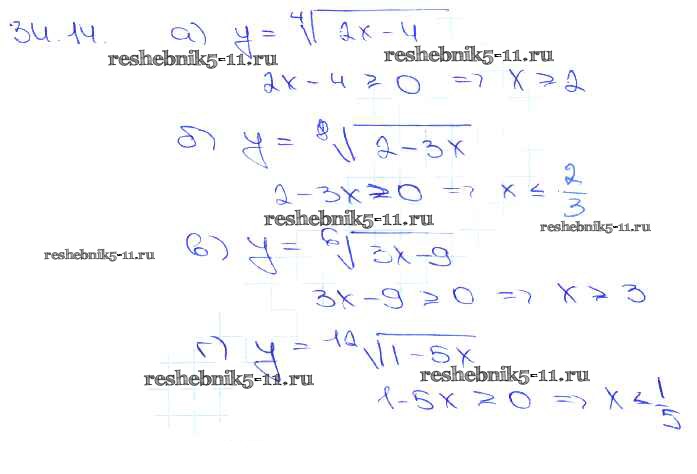 34.14. а) y = ∜(2x-4)
reshebnik5-11.ru
2x-4 ≥ 0 => x ≥ 2
б) y = ⁸√(2-3x)
2-3x ≥ 0 => x ≤ 2/3
reshebnik5-11.ru
reshebnik5-11.ru
в) y = ⁶√(3x-9)
reshebnik5-11.ru
3x-9 ≥ 0 => x ≥ 3
г) y = ¹²√(1-5x)
reshebnik5-11.ru
reshebnik5-11.ru
1-5x ≥ 0 => x ≤ 1/5